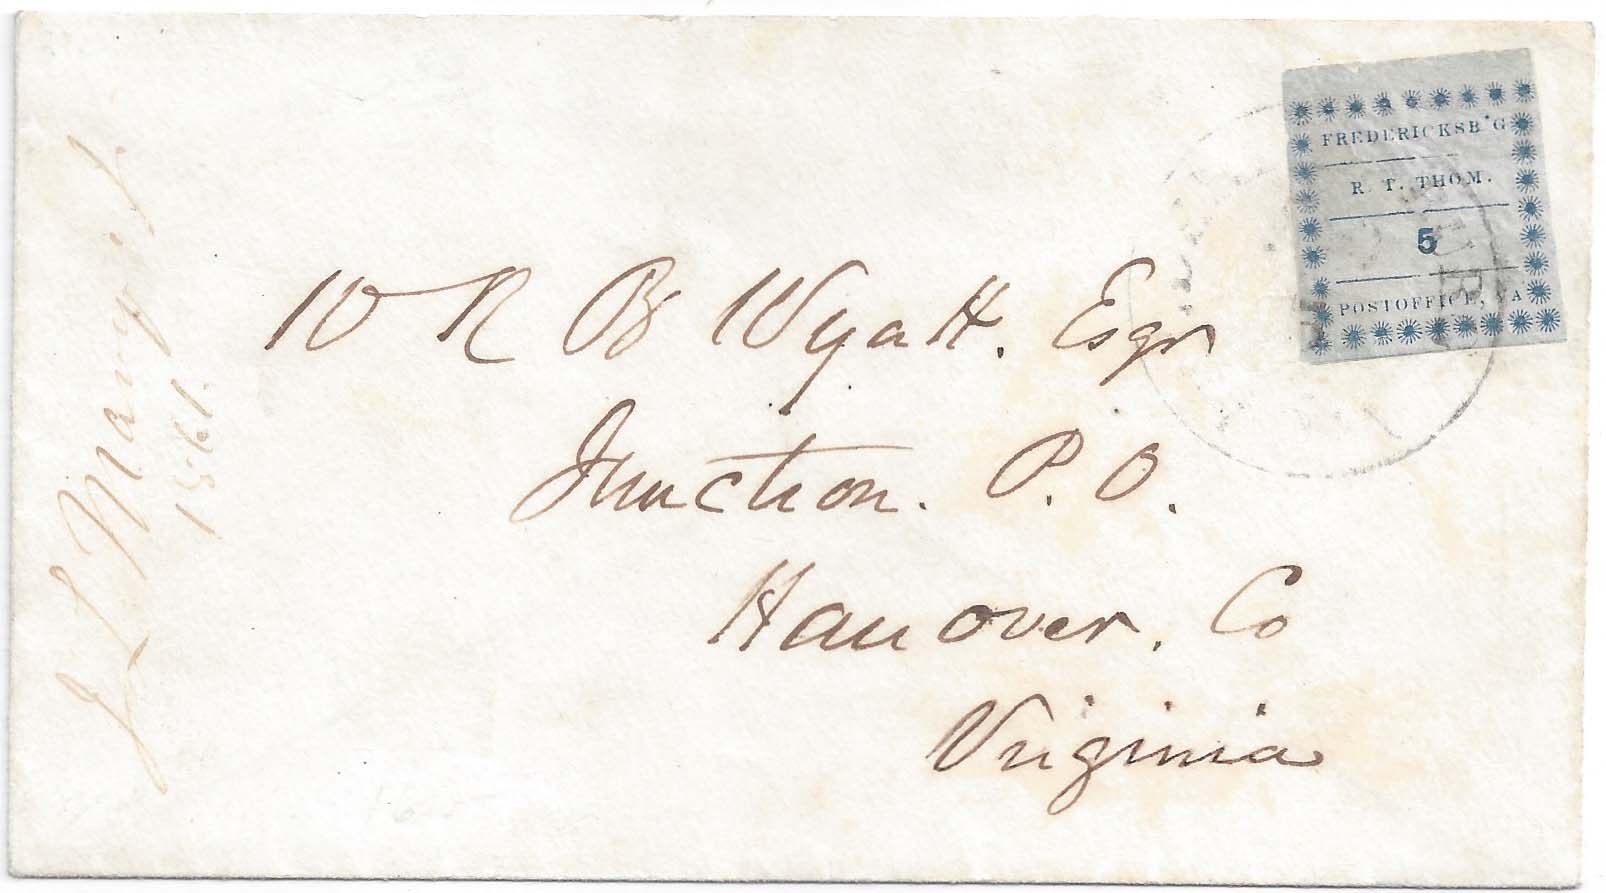 FREDERICKSB'G
R. T. THOM.
5
POSTOFFICE, VA
W R B Wyatt. Esqr
Junction. P. O.
Hanover. Co
Virginia
J L Marye Jr.
1861.